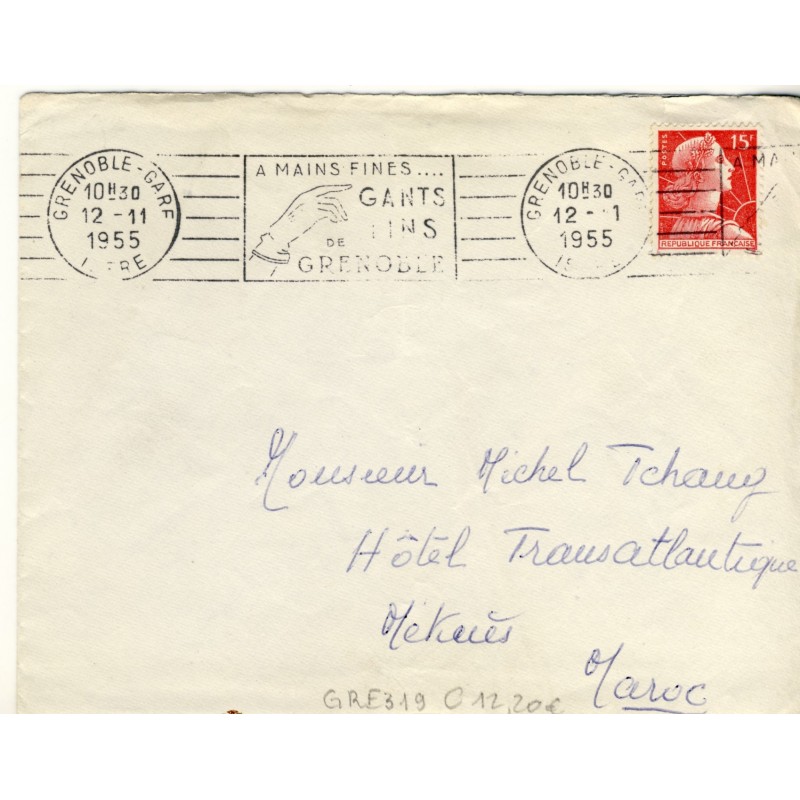 GRENOBLE - GARE
10H30
12 - 11
1955
ISERE
A MAINS FINES....
GANTS
FINS
DE
GRENOBLE
GRENOBLE - GARE
10H30
12 - 11
1955
POSTES
15F
REPUBLIQUE FRANÇAISE
A MA
Monsieur Michel Tchang
Hôtel Transatlantique
Mèknès
Maroc
GRE319 C 12,20€